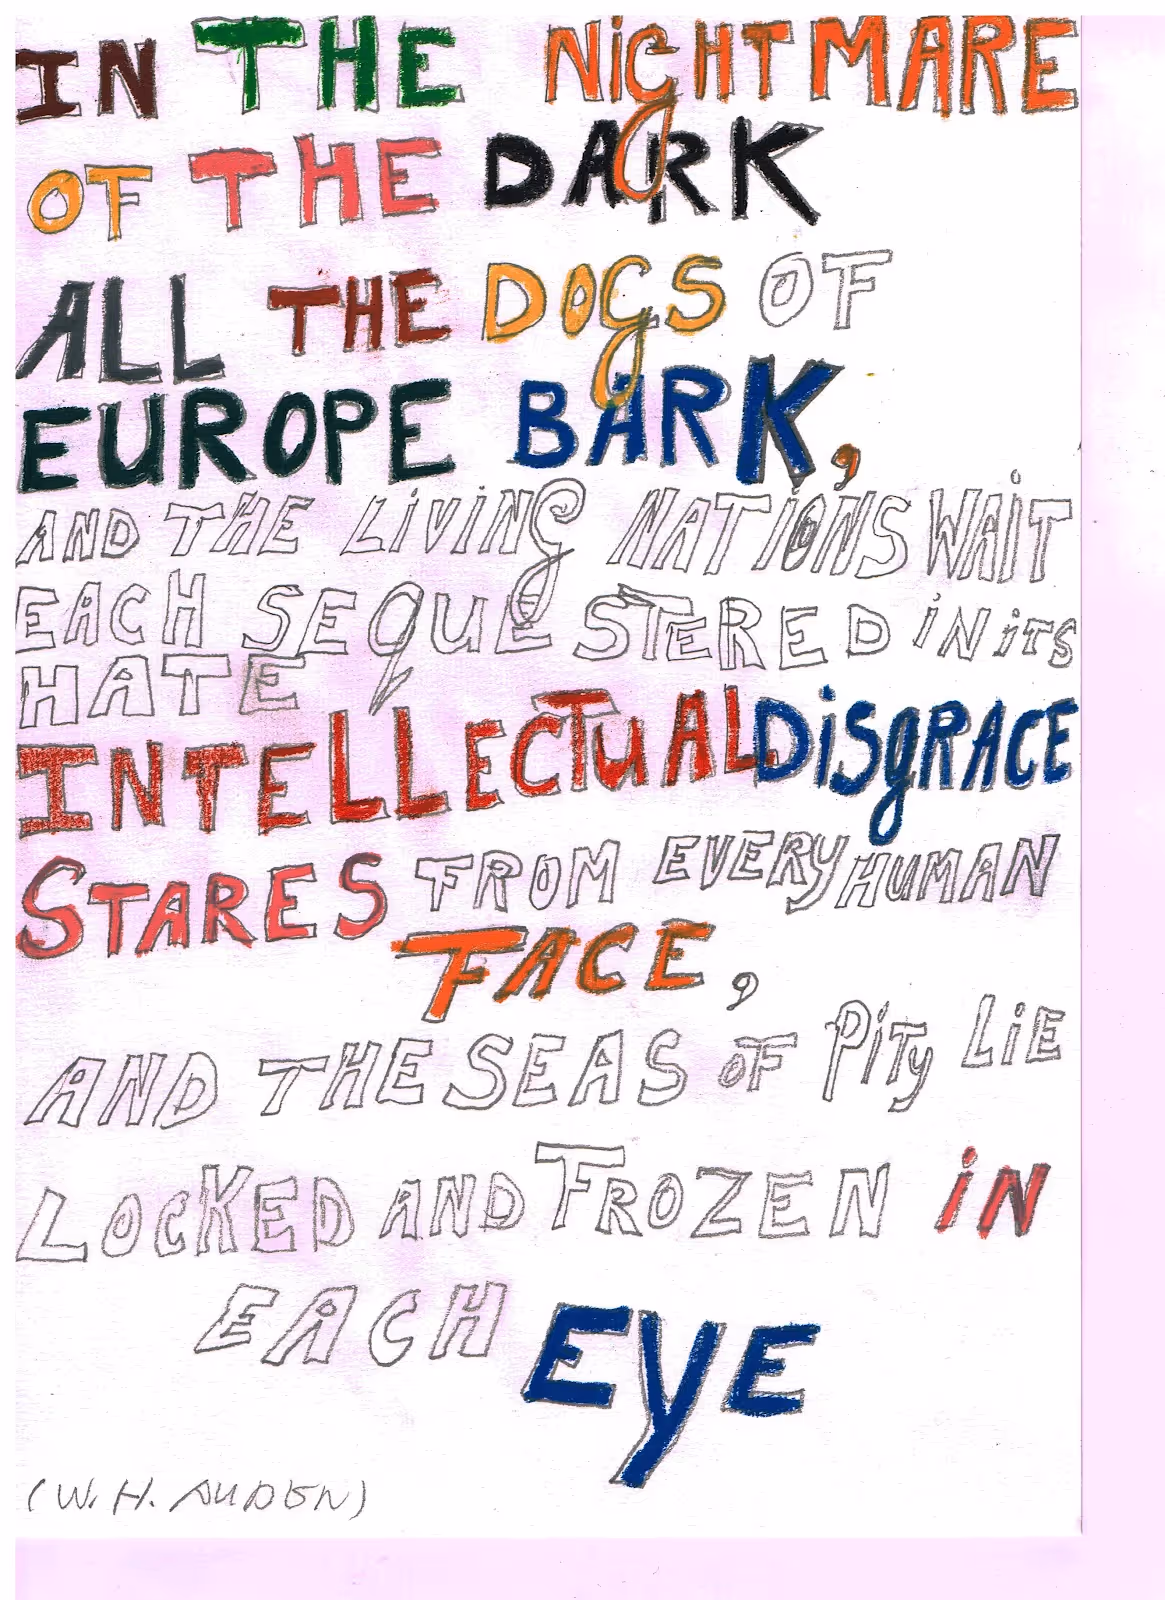 IN THE NiGHTMARE
OF THE DARK
ALL THE DOGS OF
EUROPE BARK,
AND THE LiViNG NATiONS WAiT
EACH SEQUESTERED iN iTS
HATE
INTELLECTUAL DiSgRACE
STARES FROM EVERY HUMAN
FACE,
AND THE SEAS OF PiTy LiE
LOCKED AND FROZEN iN
EACH EyE
(W. H. AUDEN)